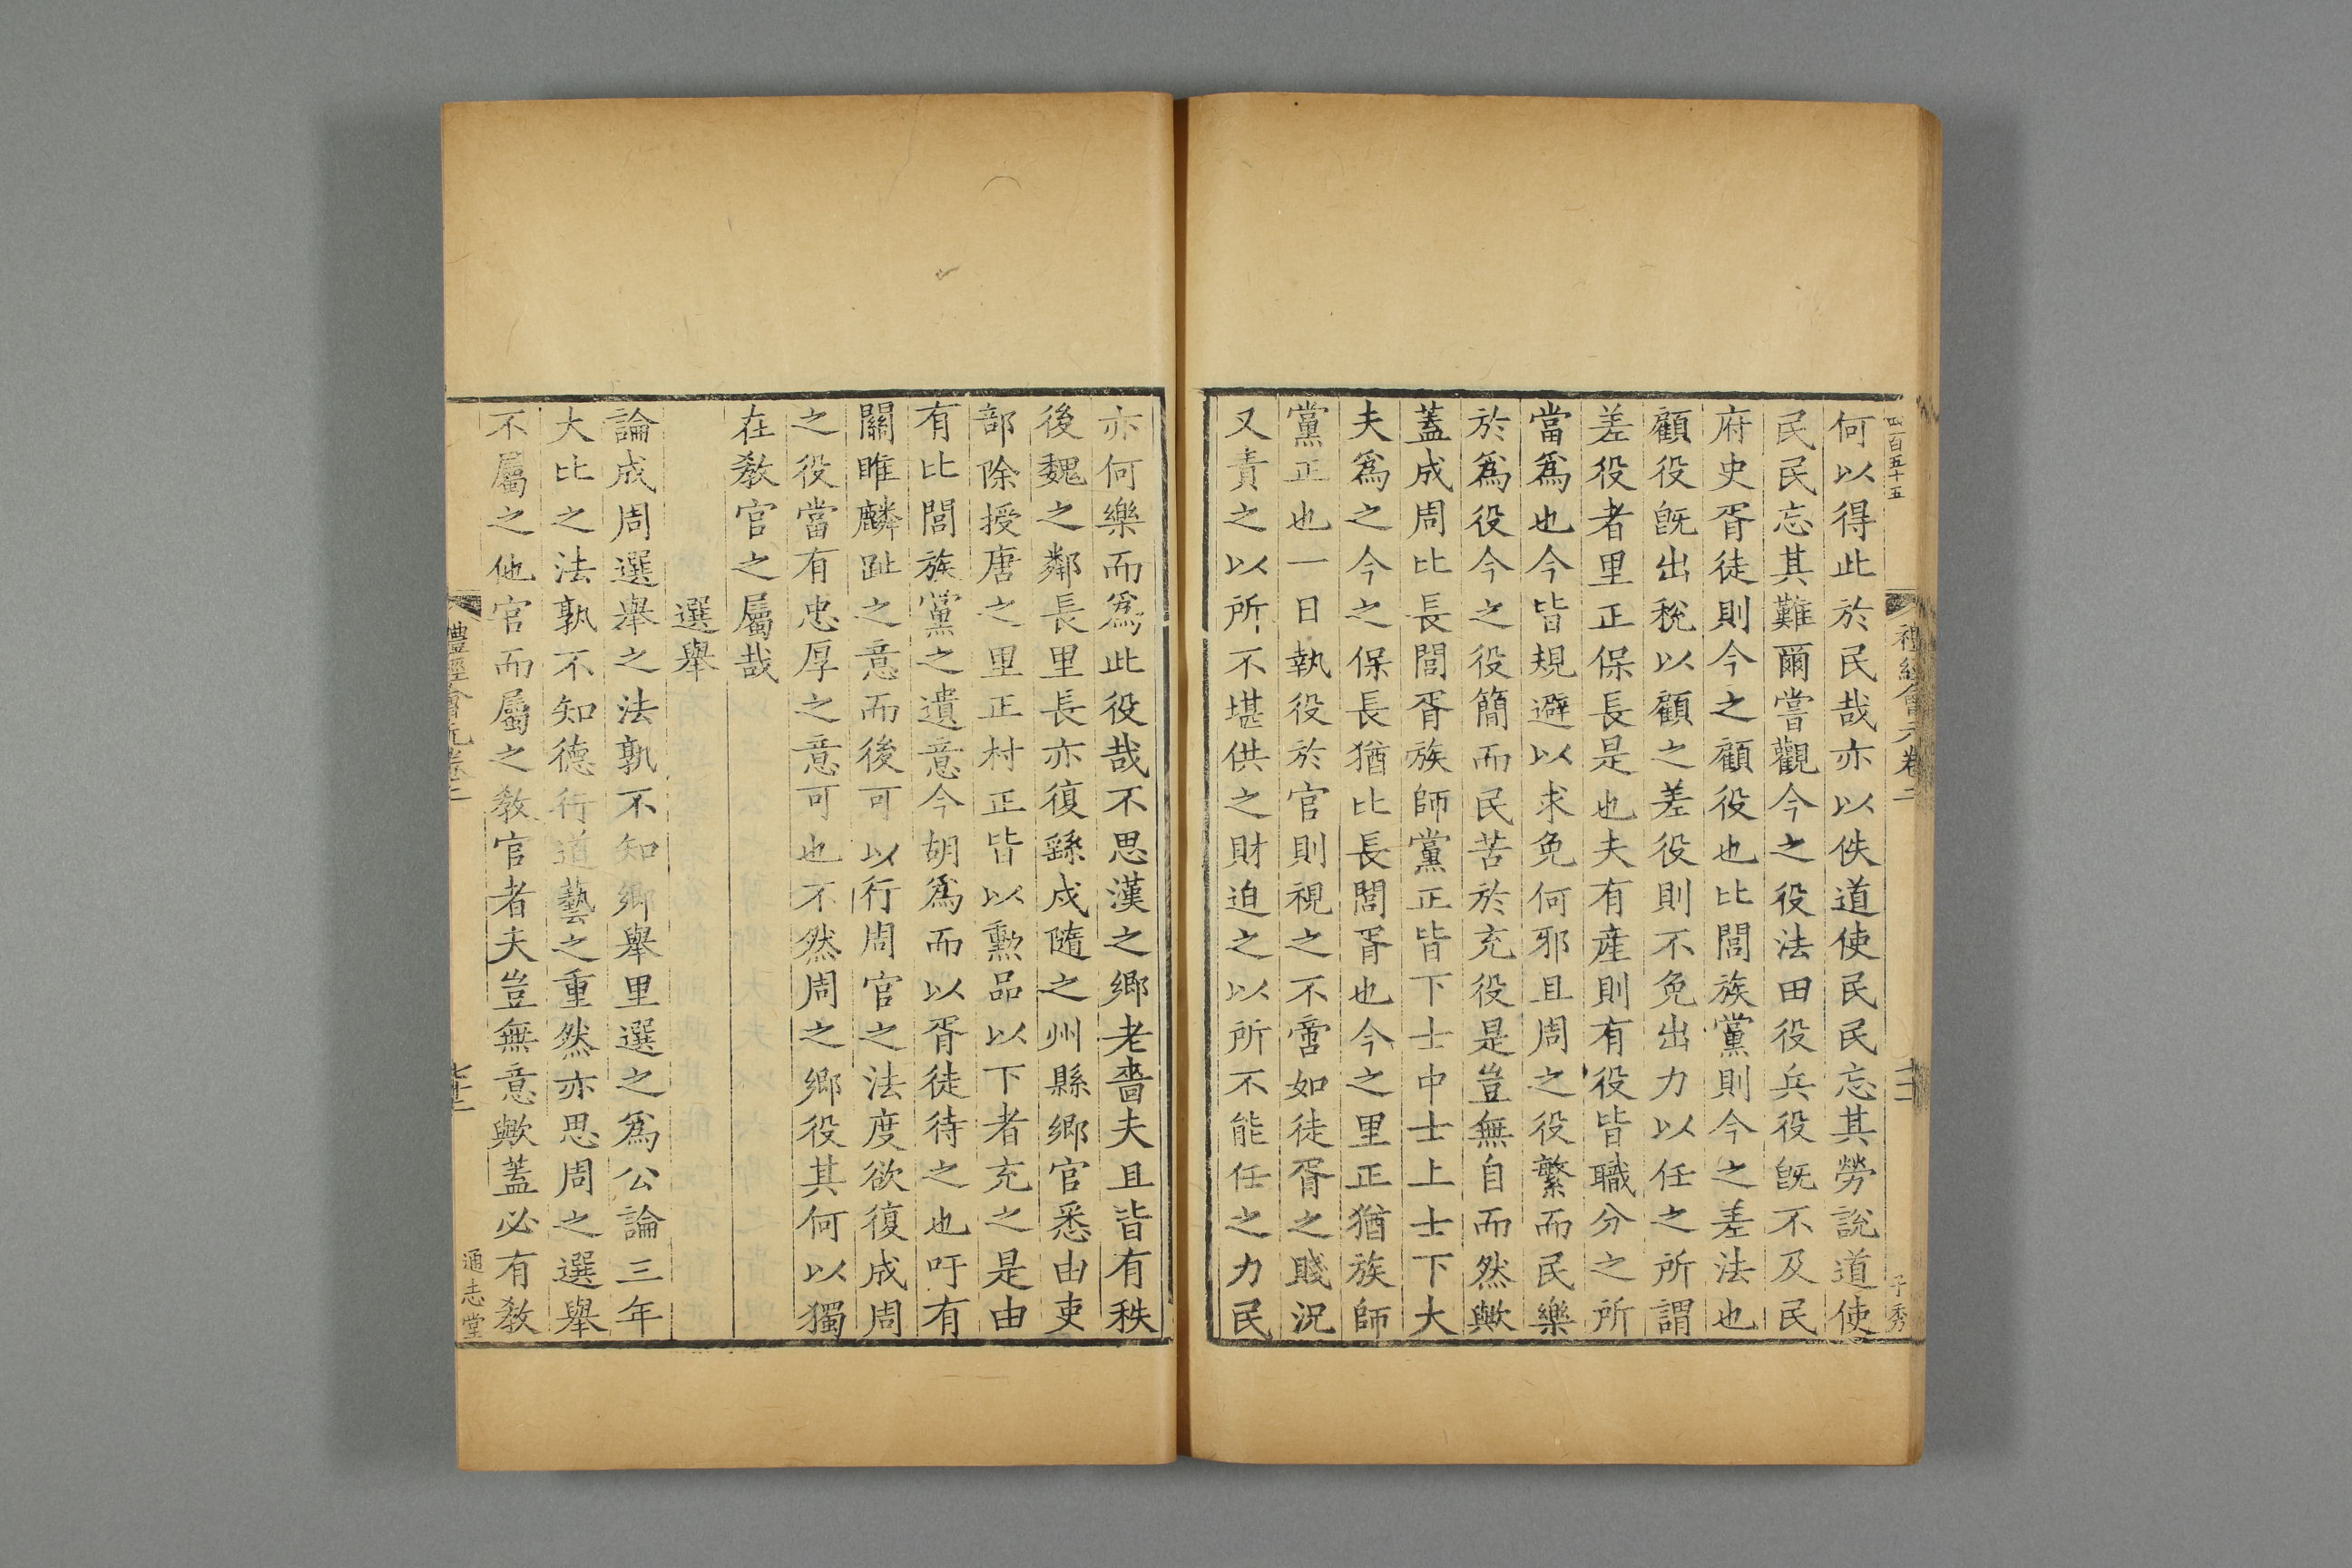 四百五十五
禮經會元卷二
十二
子秀
何以得此於民哉亦以佚道使民民忘其勞說道使
民民忘其難爾嘗觀今之役法田役兵役旣不及民
府史胥徒則今之顧役也比閭族黨則今之差法也
顧役旣出稅以顧之差役則不免出力以任之所謂
差役者里正保長是也夫有產則有役皆職分之所
當爲也今皆規避以求免何邪且周之役繁而民樂
於爲役今之役簡而民苦於充役是豈無自而然歟
蓋成周比長閭胥族師黨正皆下士中士上士下大
夫爲之今之保長猶比長閭胥也今之里正猶族師
黨正也一日執役於官則視之不啻如徒胥之賤況
又責之以所不堪供之財迫之以所不能任之力民
亦何樂而爲此役哉不思漢之鄉老嗇夫且皆有秩
後魏之鄰長里長亦復繇戍隨之州縣鄉官悉由吏
部除授唐之里正村正皆以勲品以下者充之是由
有比閭族黨之遺意今胡爲而以胥徒待之也吁有
關雎麟趾之意而後可以行周官之法度欲復成周
之役當有忠厚之意可也不然周之鄉役其何以獨
在教官之屬哉
選舉
論成周選舉之法孰不知鄉舉里選之爲公論三年
大比之法孰不知德行道藝之重然亦思周之選舉
不屬之他官而屬之教官者夫豈無意歟蓋必有教
禮經會元卷二
通志堂